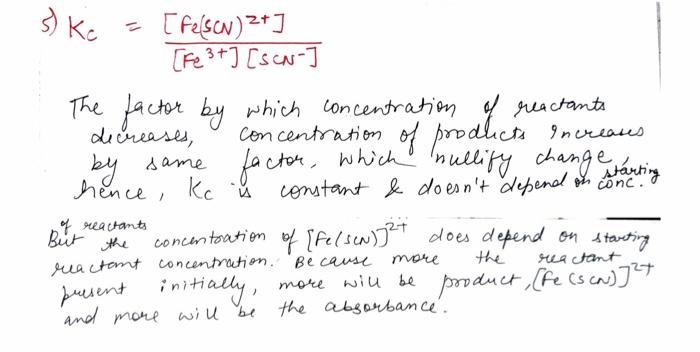 5) Kc = [Fe(SCN)2+]
[Fe3+][SCN-]
The factor by which concentration of reactants
decreases, concentration of products Increases
by same factor, which nullify change,
hence, Kc is constant & doesn't depend on starting conc.
of reactants
But the concentration of [Fe(SCN)]2+ does depend on starting
reactant concentration. Because more the reactant
present initially, more will be product, [Fe(SCN)]2+
and more will be the absorbance.